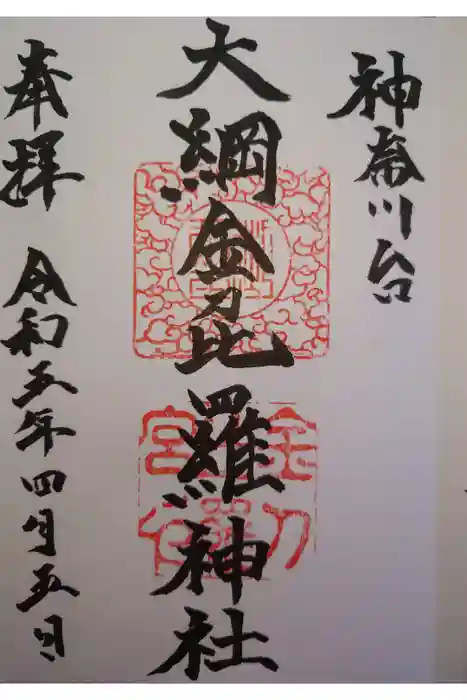 神奈川台
大綱金毘羅神社
奉拝 令和五年四月五日